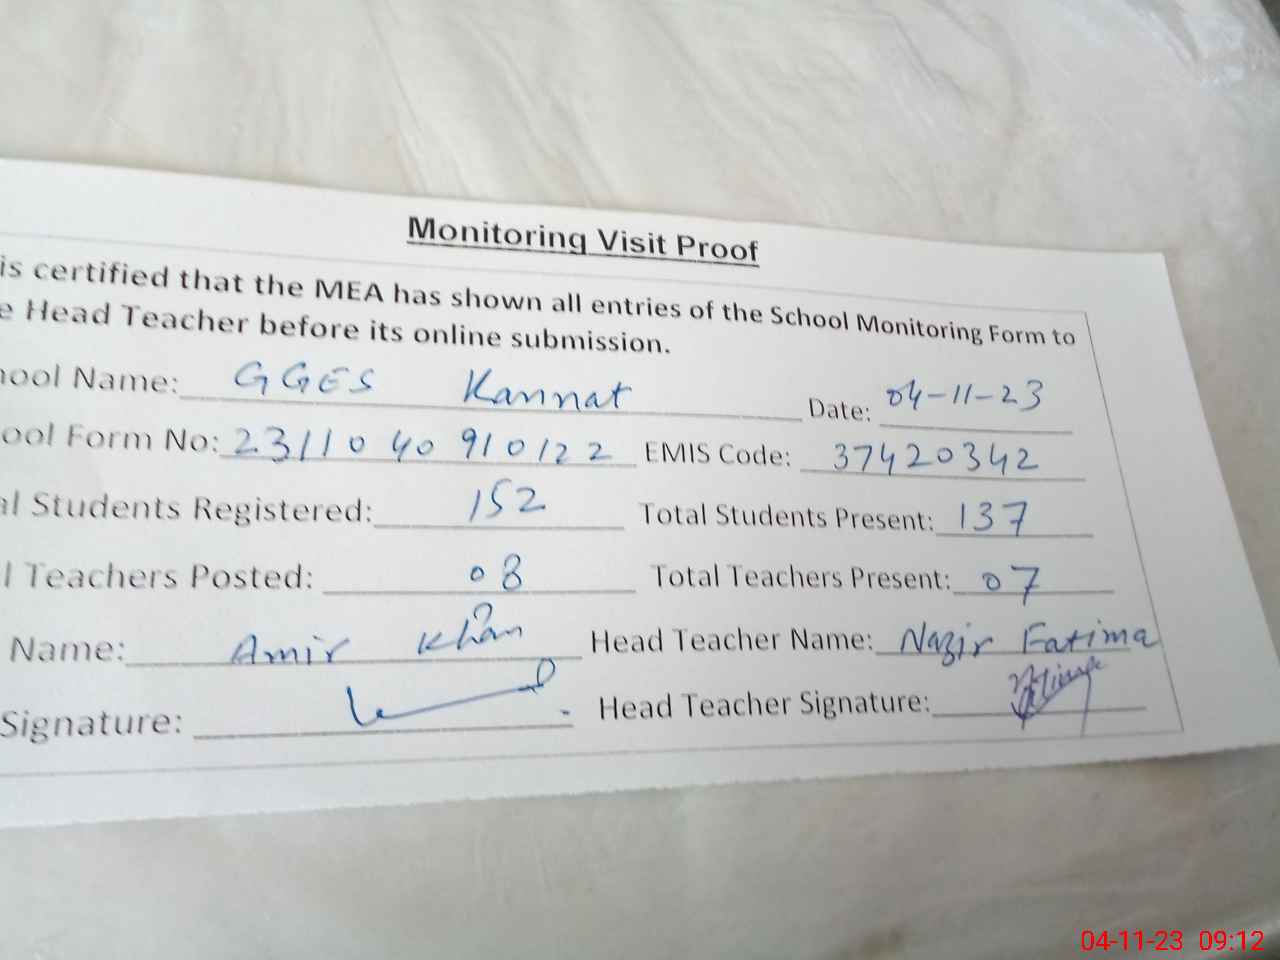 Monitoring Visit Proof
is certified that the MEA has shown all entries of the School Monitoring Form to
e Head Teacher before its online submission.
hool Name: GGES Kannat Date: 04-11-23
ool Form No: 2311040910122 EMIS Code: 37420342
al Students Registered: 152 Total Students Present: 137
l Teachers Posted: 08 Total Teachers Present: 07
Name: Amir Khan Head Teacher Name: Nazir Fatima
Signature: Head Teacher Signature:
04-11-23 09:12